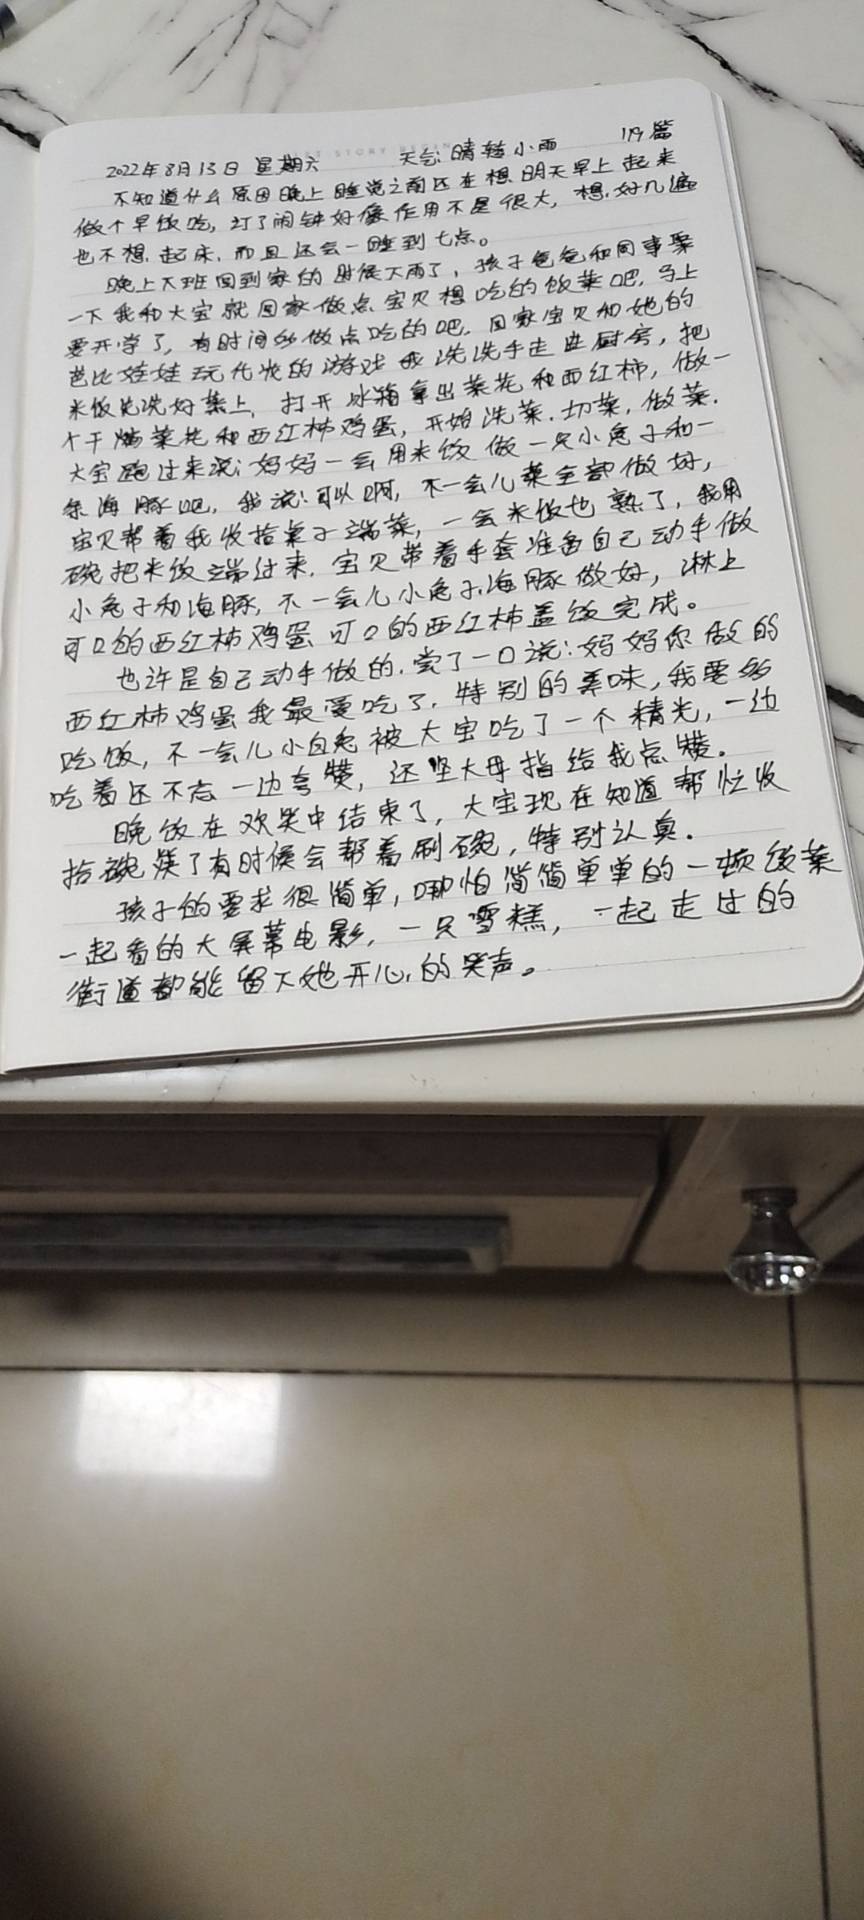 2022年8月13日 星期六 天气:晴转小雨 119篇
不知道什么原因晚上睡觉之前还在想明天早上起来
做个早饭吃,打了闹钟好像作用不是很大,想好几遍
也不想起床,而且还会一睡到七点。
晚上下班回到家的时候下雨了,孩子爸爸和同事聚
一下我和大宝就回家做点宝贝想吃的饭菜吧,马上
要开学了,有时间多做点吃的吧,回家宝贝和她的
芭比娃娃玩化妆的游戏我洗洗手走进厨房,把
米饭先洗好蒸上,打开冰箱拿出菜花和西红柿,做一
个干煸菜花和西红柿鸡蛋,开始洗菜,切菜,做菜.
大宝跑过来说:妈妈一会用米饭做一只小兔子和一
条海豚吧,我说:可以啊,不一会儿菜全部做好,
宝贝帮着我收拾桌子端菜,一会米饭也熟了,我用
碗把米饭端过来,宝贝带着手套准备自己动手做
小兔子和海豚,不一会儿小兔子,海豚做好,淋上
可口的西红柿鸡蛋可口的西红柿盖饭完成。
也许是自己动手做的,尝了一口说:妈妈你做的
西红柿鸡蛋我最爱吃了,特别的美味,我要多
吃饭,不一会儿小白兔被大宝吃了一个精光,一边
吃着还不忘一边夸赞,还竖大母指给我点赞.
晚饭在欢笑中结束了,大宝现在知道帮忙收
拾碗筷了有时候会帮着刷碗,特别认真.
孩子的要求很简单,哪怕简简单单的一顿饭菜
一起看的大屏幕电影,一只雪糕,一起走过的
街道都能留下她开心的笑声。